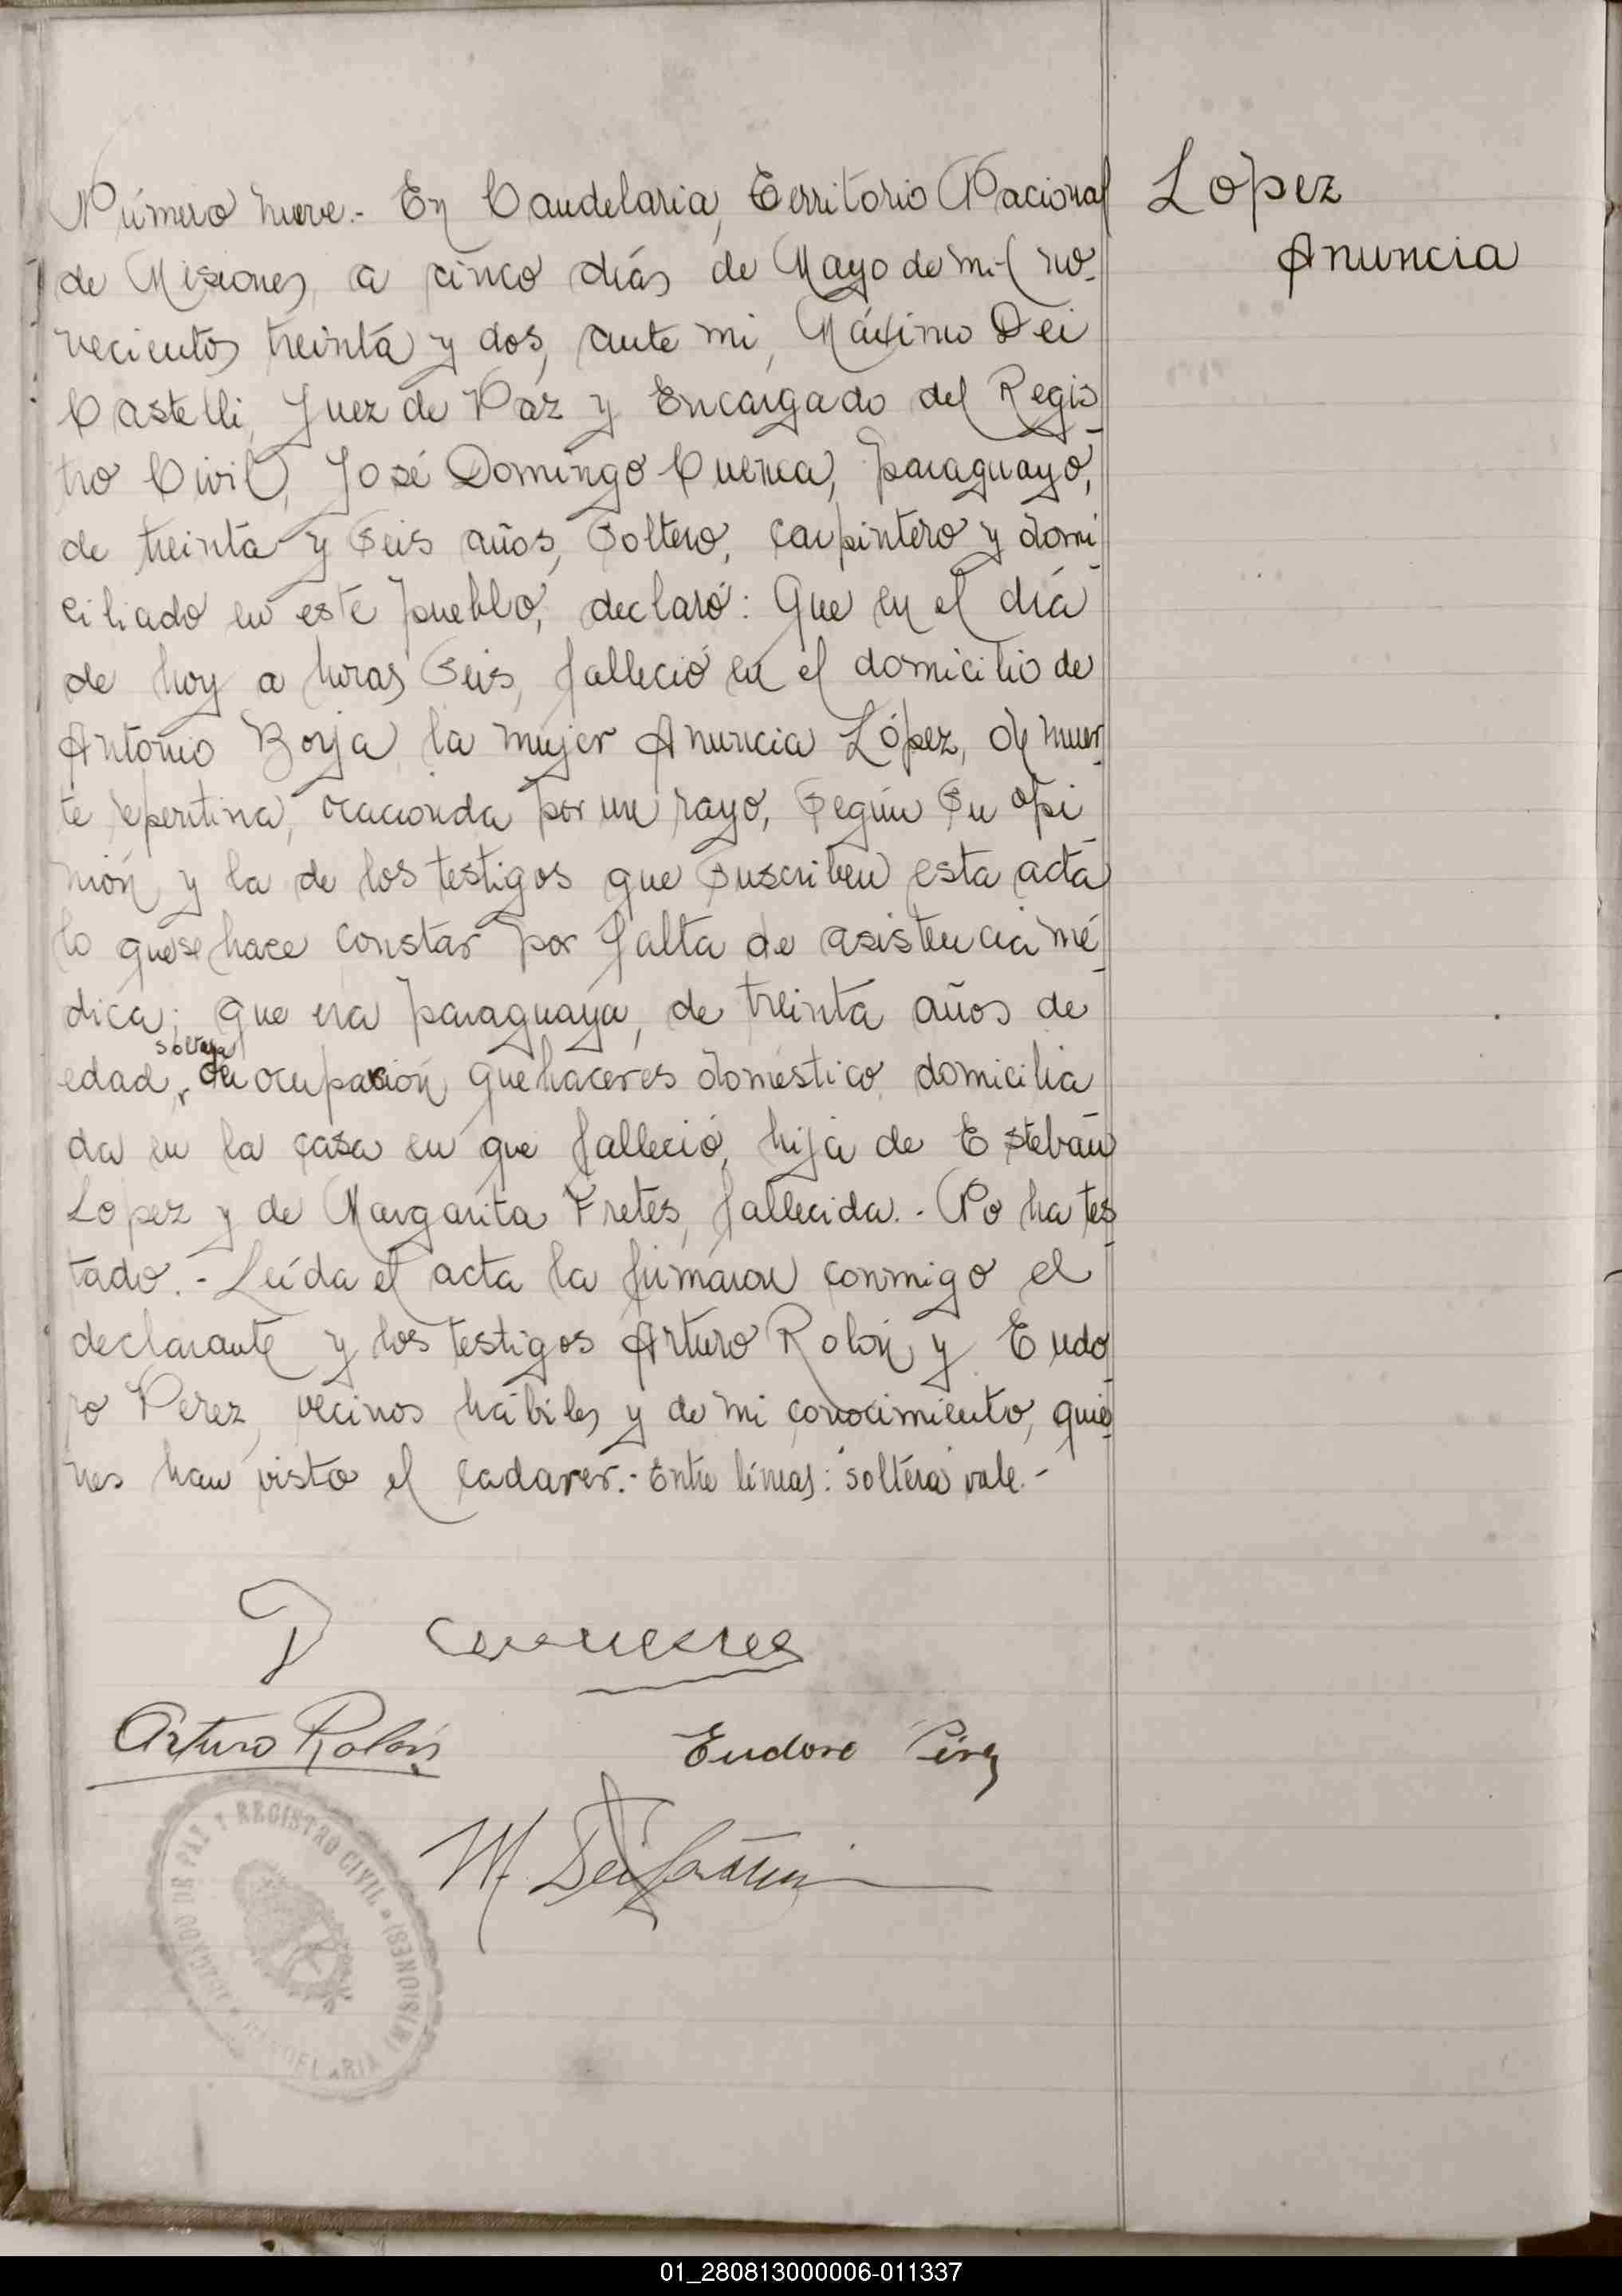 Número nueve.- En Candelaria, Territorio Nacional
de Misiones, a cinco días de Mayo de mil no-
vecientos treinta y dos, ante mi, Máximo Dei
Castelli, Juez de Paz y Encargado del Regis-
tro Civil, José Domingo Cuenca, paraguayo,
de treinta y seis años, soltero, carpintero y domi-
ciliado en este pueblo, declaró: Que en el día
de hoy a horas seis, falleció en el domicilio de
Antonio Borja, la mujer Anuncia López, de muer-
te repentina, ocacionda por un rayo, según su opi-
nión y la de los testigos que suscriben esta acta
lo que se hace constar por falta de asistencia mé-
dica; que era paraguaya, de treinta años de
soltera
edad, de ocupación quehaceres doméstico, domicilia
da en la casa en que falleció, hija de Esteban
Lopez y de Margarita Fretes, fallecida.- No ha tes-
tado.- Leída el acta la firmaron conmigo el
declarante y los testigos Arturo Rolón y Eudo-
ro Perez, vecinos hábiles y de mi conocimiento, quie-
nes han visto el cadaver.- Entre líneas: soltera vale.-
Lopez
Anuncia
Arturo Rolón
Eudoro Pérez
JUZGADO DE PAZ Y REGISTRO CIVIL
CANDELARIA (MISIONES)
01_280813000006-011337